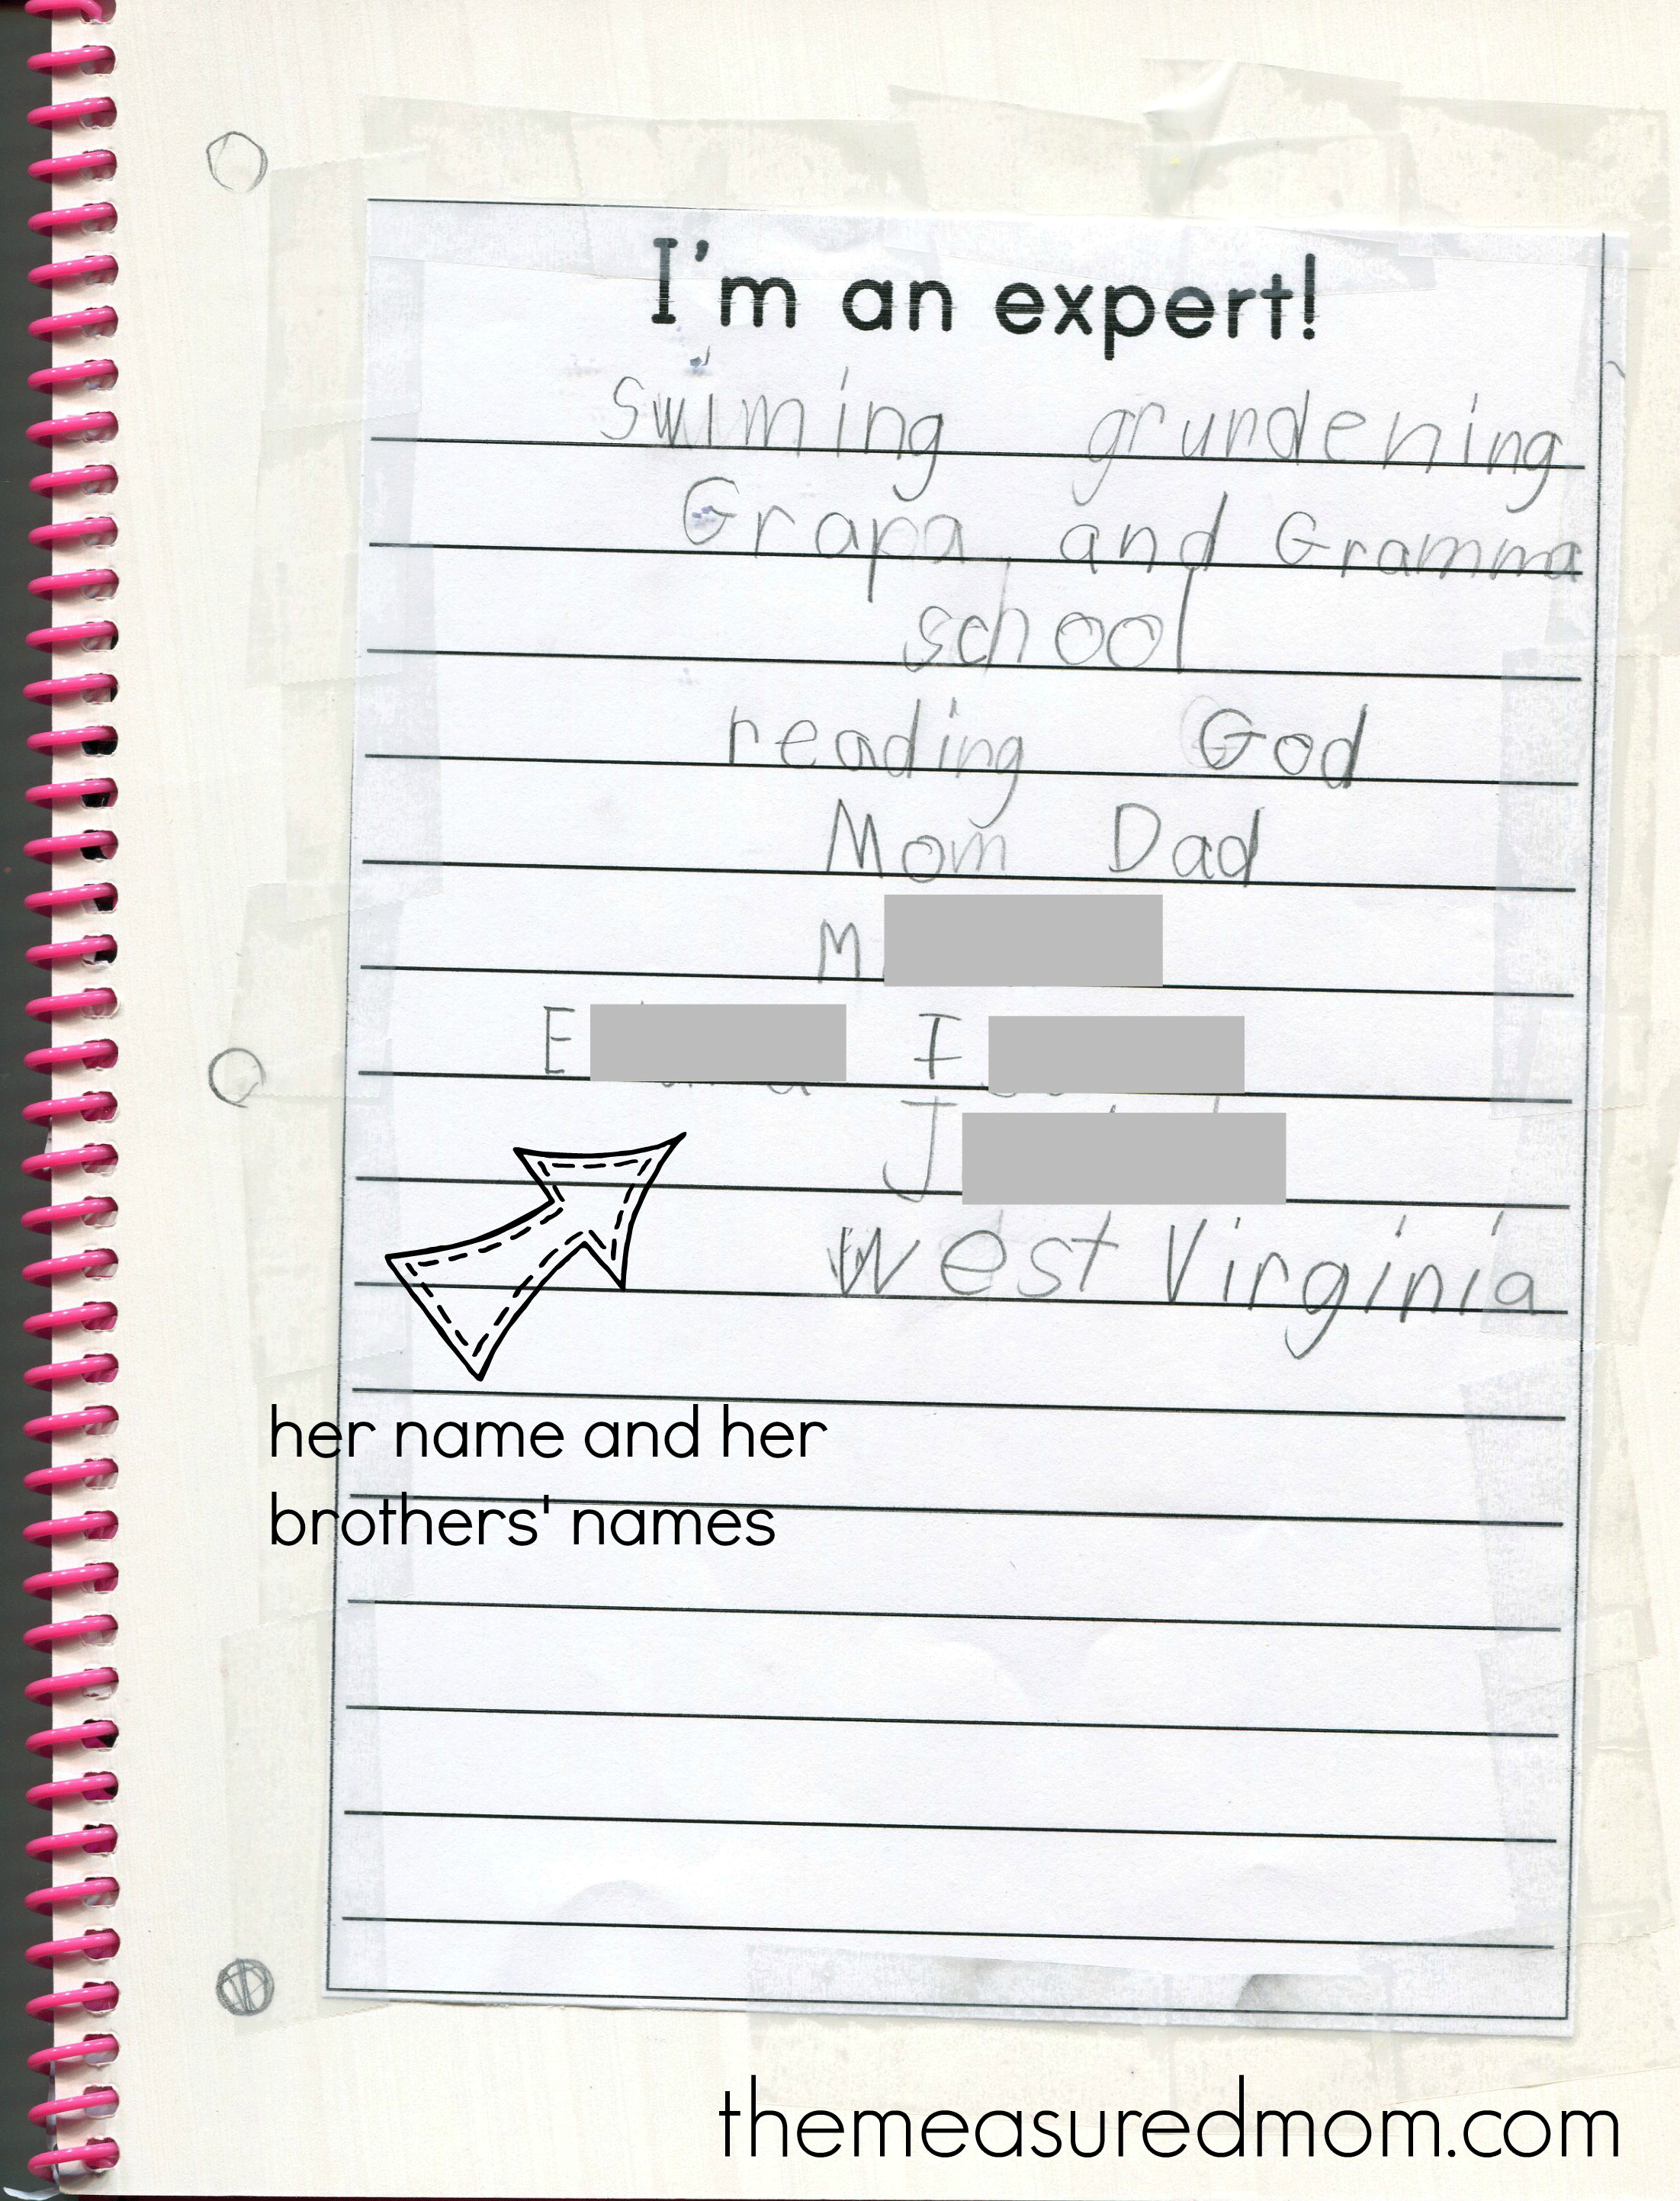 I'm an expert!
Swiming grurdening
Grapa and Gramma
school
reading God
Mom Dad
M
E I
J
West Virginia
her name and her
brothers' names
themeasuredmom.com